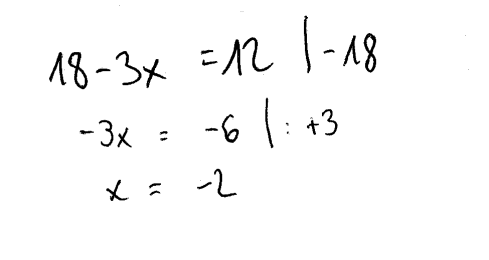 18-3x = 12 | -18
-3x = -6 | : +3
x = -2